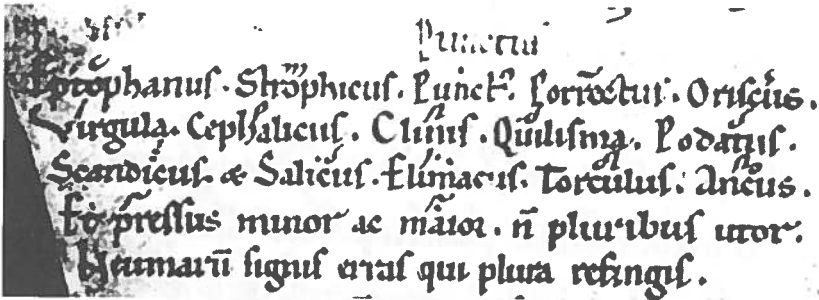 Punctū
Epıtophanus. Strophicus. Punct⁹. Porrectus. Oriscus.
Virgula. Cephalicus. Clinis. Quilisma. Podatus.
Scandicus. & Salicus. Climacus. Torculus. Ancus.
Et p̄ressus minor ac maior. n̄ pluribus utor.
Neumarū signis erras qui plura refingis.